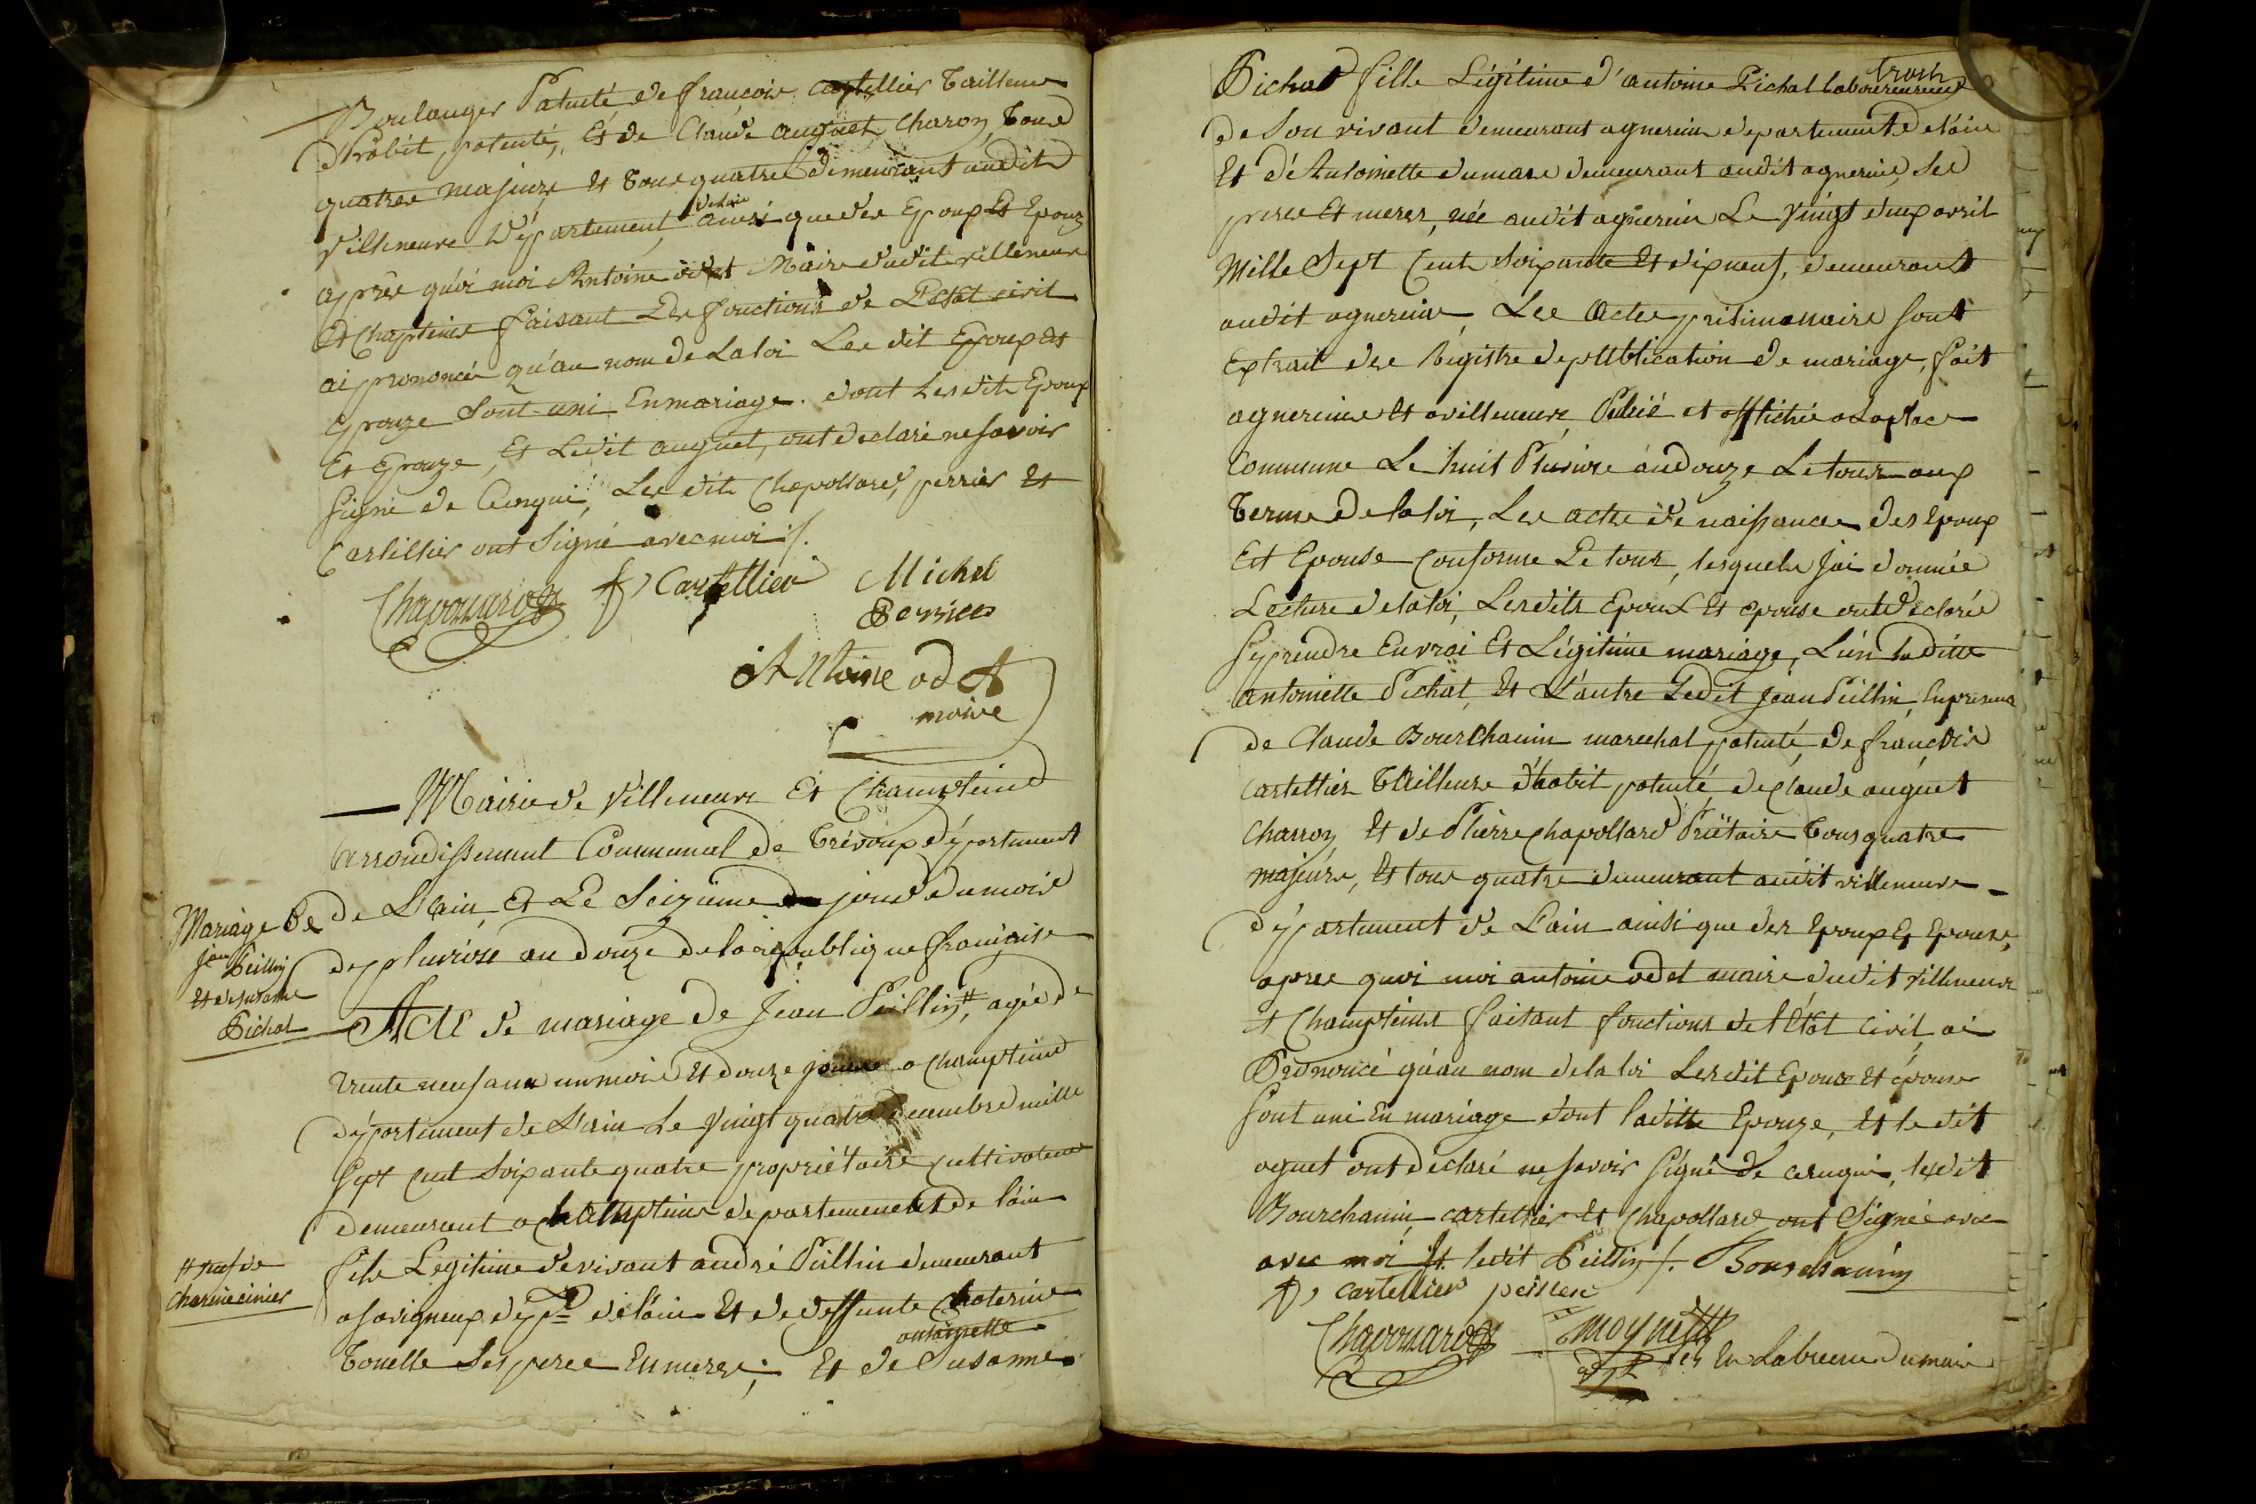 Boulanger Patenté de françois cartellier Tailleur
d'habit, patenté, Et de Claude auguet Charon, Tous
quatre majeurs Et Tous quatre Demeurant audit
Villeneuve Département de l'ain ainsi que des Epoux Et Epouze
après quoi moi Antoine odet Maire dudit villeneuve
Et Chapteins faisant Les fonctions de L'etat civil
ai prononcé qu'au nom de La loi Les dit Epoux et
Epouze Sont uni En mariage. dont Lesdits Epoux
Et Epouze, Et Ledit auguet, ont declaré ne savoir
signé de Cenquis, Les dits Chapollard, perrier Et
Cartellier ont Signé avec moi /.
Chapouard f, Cartellier Michel
Perrier
Antoine odet
maire
Mairie de Villeneuve Et Champteins
arrondissement Communal de Trévoux département
Mariage De
jean Peillin
Et de susanne
Pichat
de L'ain, Et Le Seizieme jour du mois
de pluviose an douze de la republique française
Acte de mariage de Jean Peillin, # agée de
trente neuf ans un mois Et douze jours a Champteins
département de L'ain Le Vingt quatre decembre mille
Sept cent Soixante quatre propriétaire cultivateur
demeurant a Champteins departement de l'ain
# veuf de
Charine cinier
fils Legitime de vivant andré Peillin demeurant
a savigneux dept de l'ain Et de deffunte Caterine
Touelle Ses peres En meres; Et de Susanne antoinette
Pichat fille Légitime d'antoine Pichat laboureur
de son vivant demeurant agnereins departement De l'ain
Et d'Antoinette dumas demeurant audit agnereins, Ses
peres Et meres, née audit agnereins Le Vingt deux avril
Mille Sept Cent Soixante Et dix neuf, demeurant
audit agnereins, Les Actes préliminaire sont
Extrait des Registre de publication de mariage, fait
agnereins Et a villeneuve, Publié et affichée a la place
Commune Le huit Pluviose an douze Le tous aux
Terme de la loi, Les actes de naissances des Epoux
Et Epouse Conforme Le tous, lesquels J'ai donnée
Lecture de la loi, Lesdits Epoux Et epouse ont declarée
se prendre En vrai Et Légitime mariage, L'un laditte
antoinette Pichat, Et L'autre Ledit Jean Peillin, En presence
de Claude Bourchanin marechal patenté, de françois
Cartellier Tailleure d'habit patenté, de Claude auguet
Charron, Et de Pierre Chapollard Tous quatre
majeurs, Et tous quatre demeurant audit villeneuve
département de L'ain ainsi que des Epoux Et Epouse,
apres quoi moi antoine odet maire dudit villeneuve
Et Champteins faisant fonctions de l'Etat civil, ai
Prononcé qu'au nom de la loi Lesdit Epoux Et épouse
sont uni En mariage dont laditte Epouze, Et ledit
aguet ont déclaré ne savoir signé de cenquis, lesdit
Bourchanin, cartellier Et Chapollard ont Signée avec
avec moi Et ledit Peillin /. Bourchanin
f, cartellier peillin
Chapouard Moyne
adjt En Labsence du maire